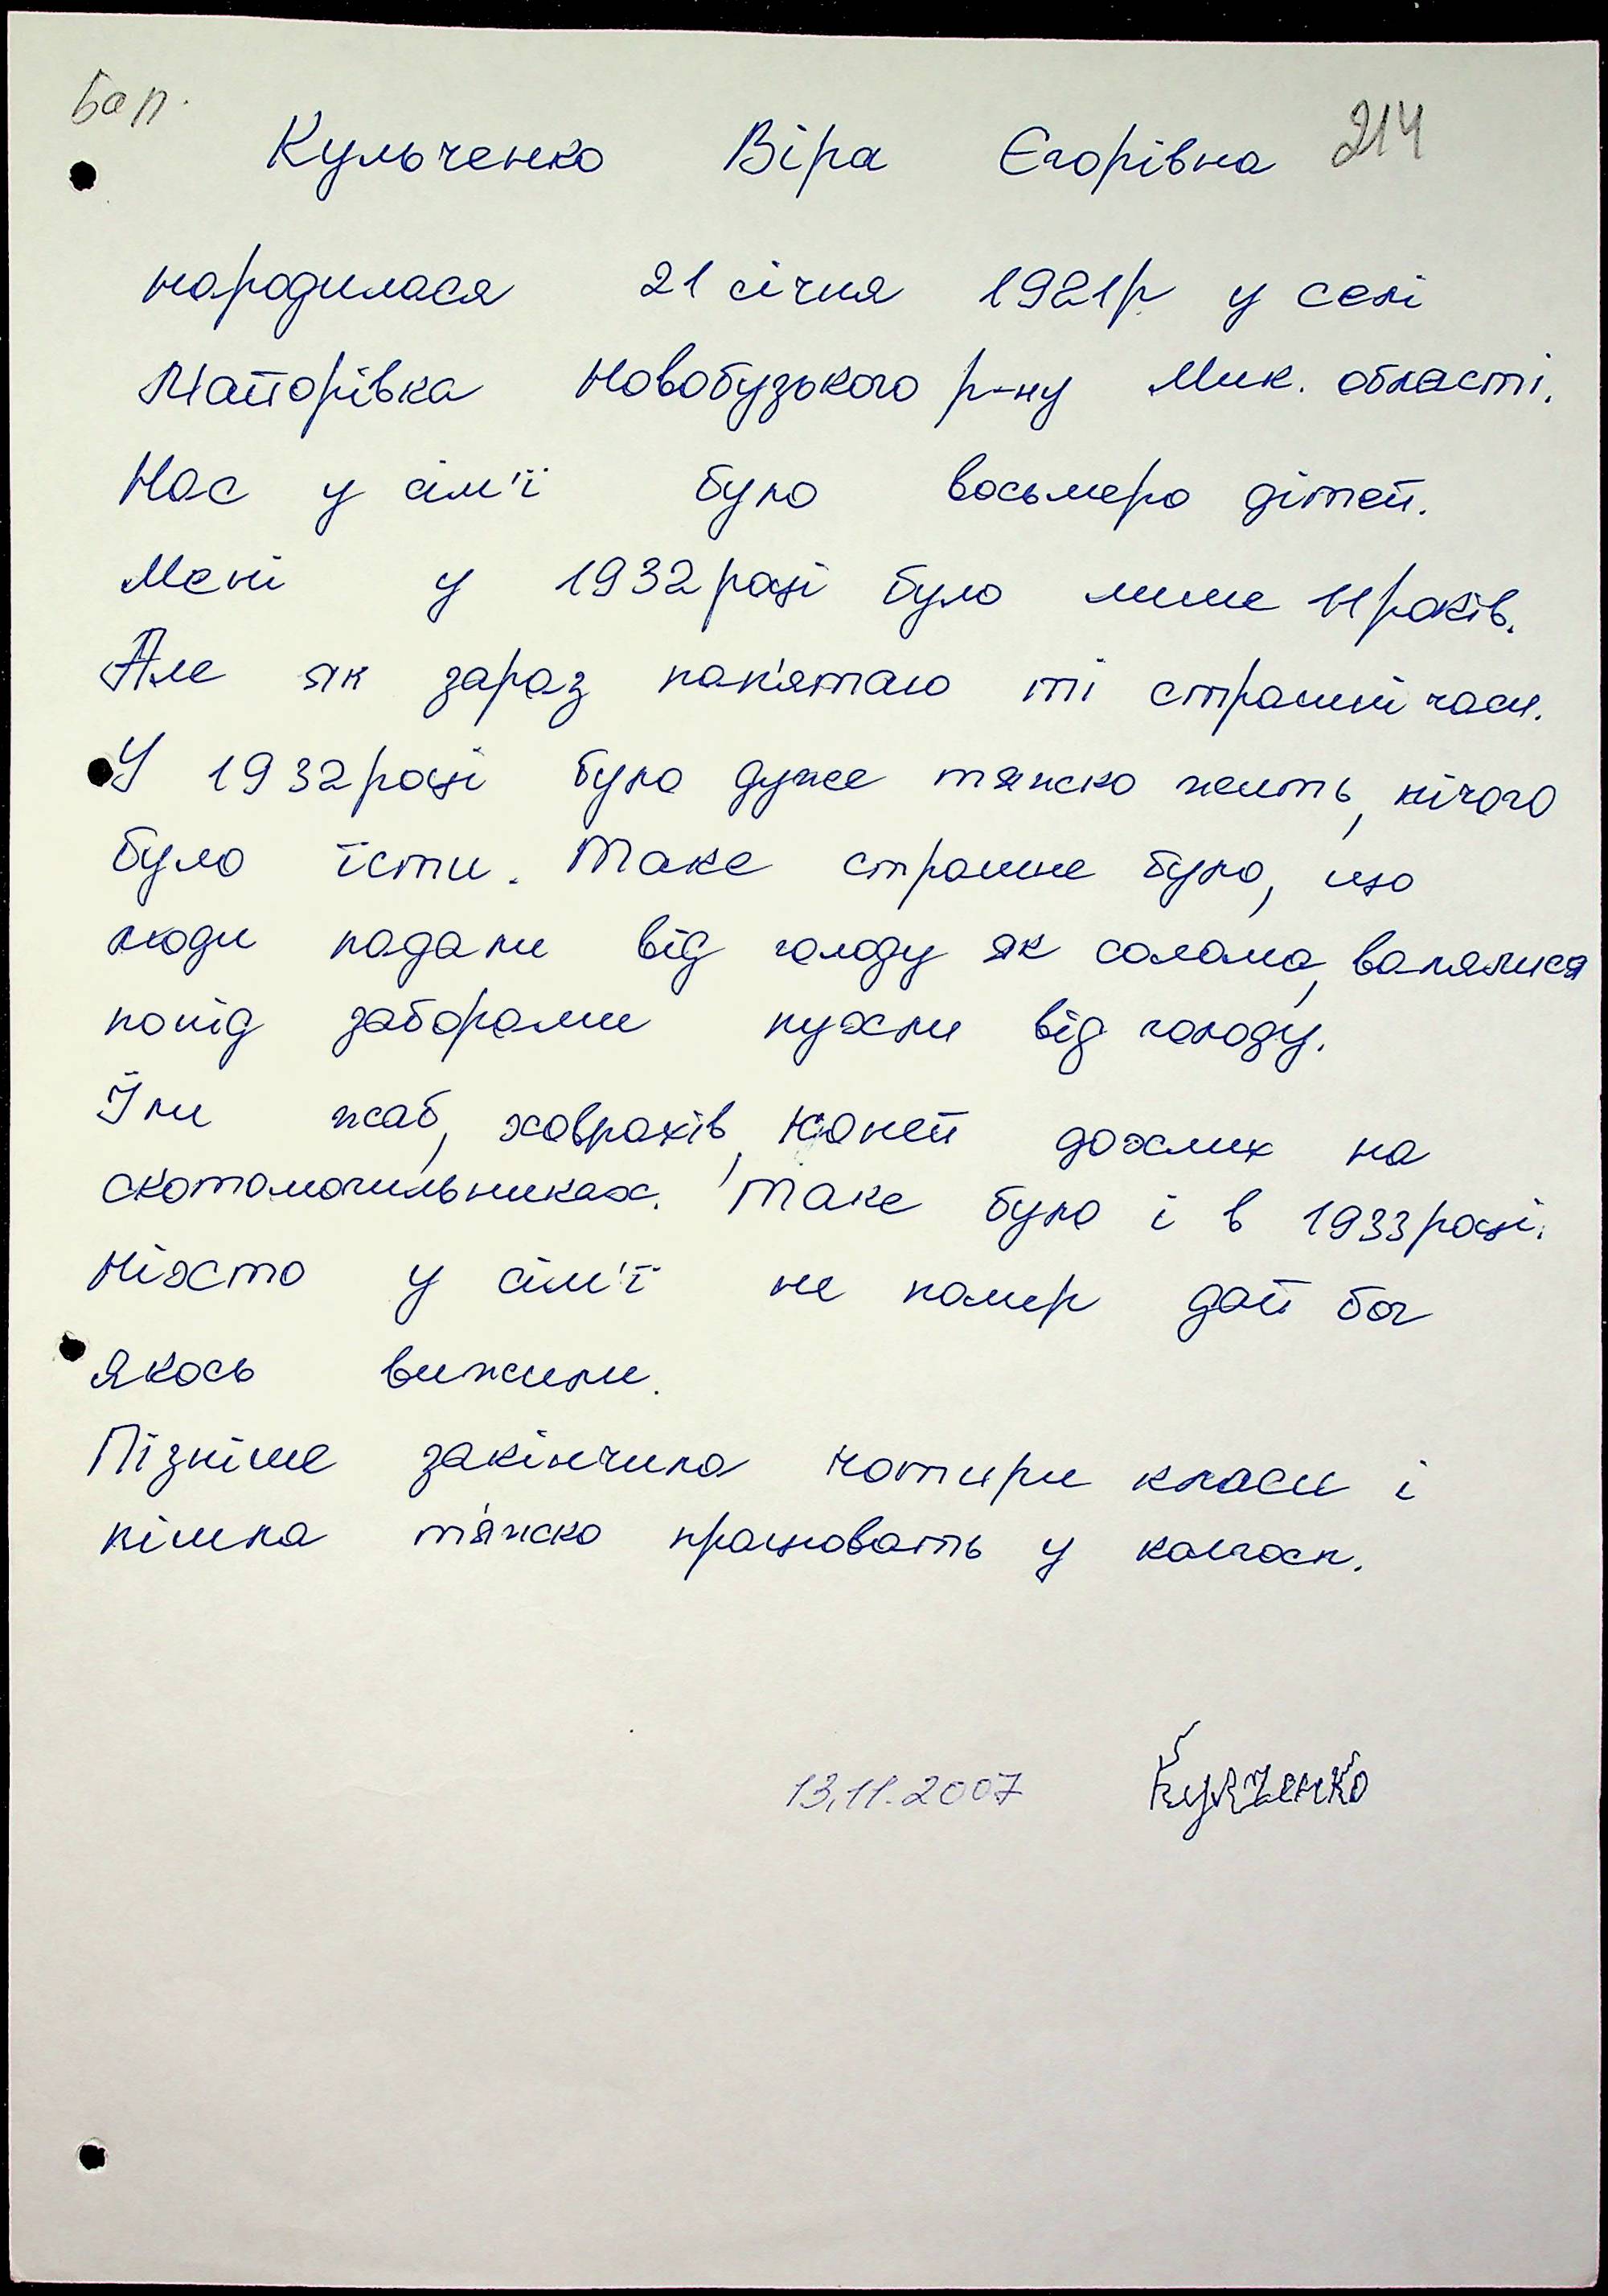 Бап.
214
Кульченко Віра Єгорівна
народилася 21 січня 1921р у селі
Майорівка Новобузького р-ну Мик. області.
Нас у сім'ї було восьмеро дітей.
Мені у 1932 році було лише 11 років.
Але як зараз пам'ятаю ті страшні часи.
У 1932 році було дуже тяжко жить, нічого
було їсти. Таке страшне було, що
люди падали від голоду як солома, валялися
попід заборами пухли від голоду.
Їли жаб, ховрахів, коней дохлих на
скотомогильниках. Таке було і в 1933 році.
Ніхто у сім'ї не помер дай бог
якось вижили.
Пізніше закінчила чотири класи і
пішла тяжко працювать у колгосп.
13.11.2007 Кулченко